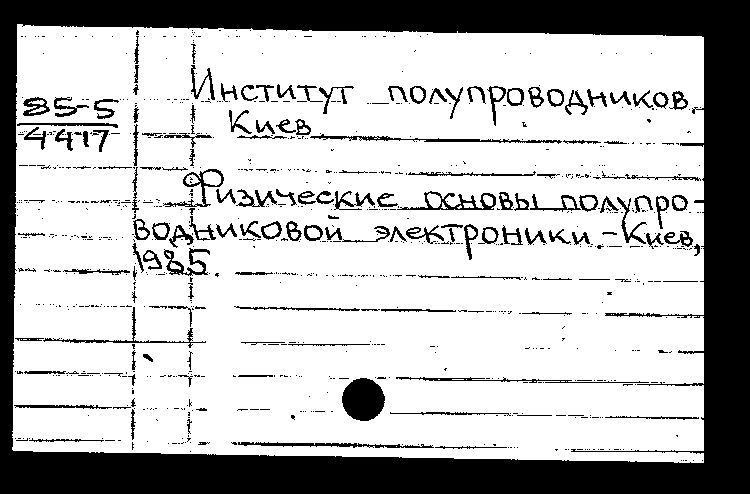 85-5
4417
Институт полупроводников.
Киев
Физические основы полупро-
водниковой электроники. - Киев,
1985.